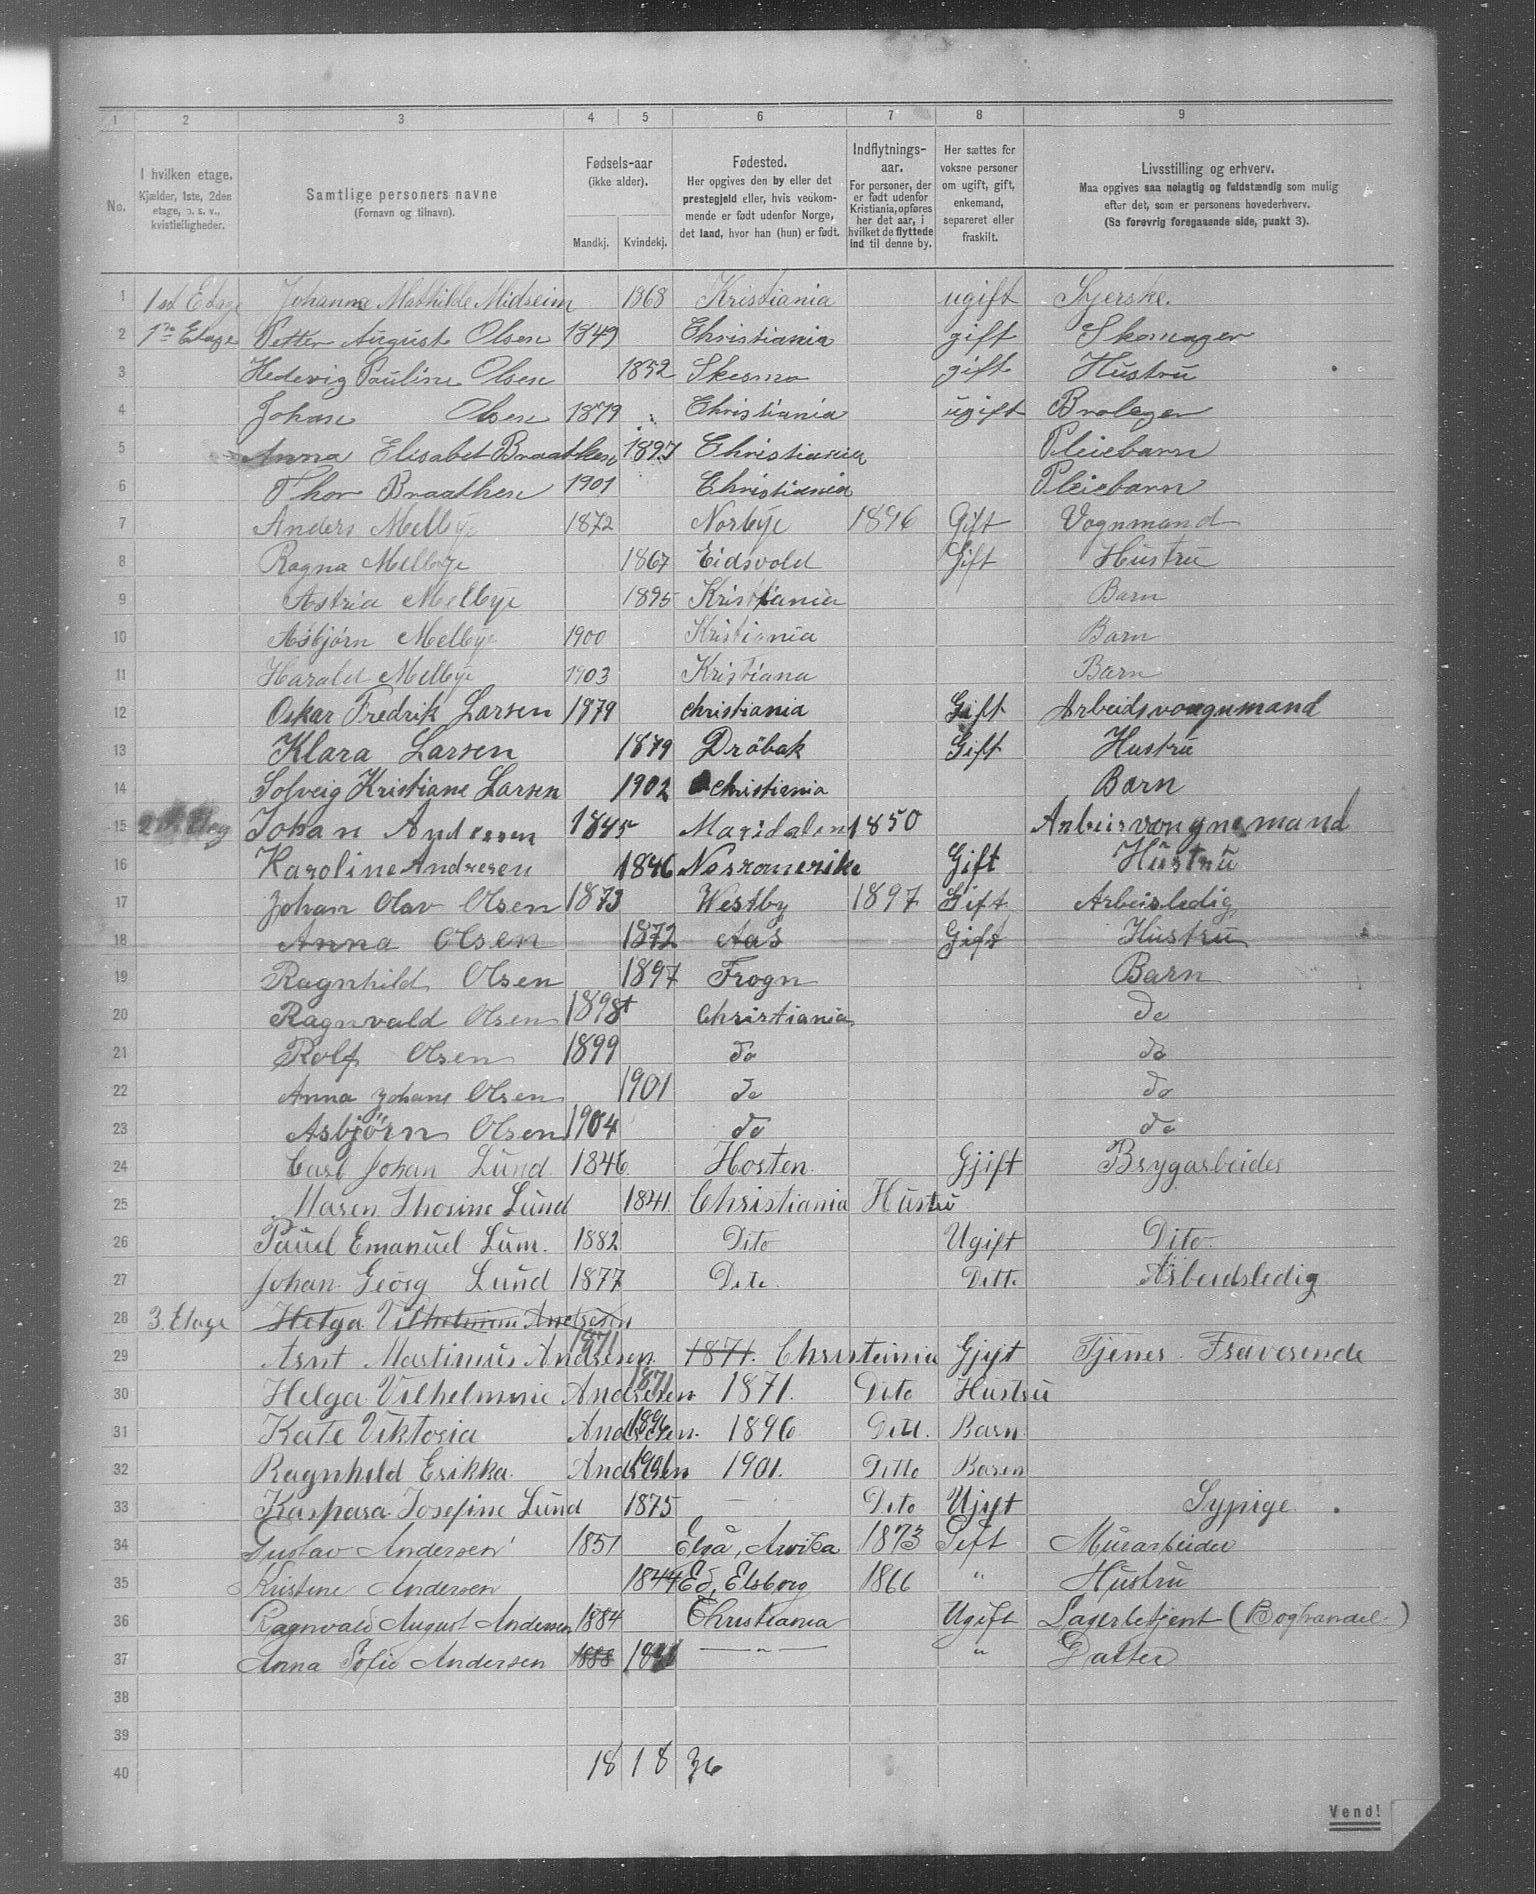 1 2 3 4 5 6 7 8 9
No. I hvilken etage. Kjælder, 1ste, 2den etage, o. s. v., kvistleiligheder. Samtlige personers navne (Fornavn og tilnavn). Fødsels-aar (ikke alder). Mandkj. Kvindekj. Fødested. Her opgives den by eller det prestegjeld eller, hvis vedkommende er født udenfor Norge, det land, hvor han (hun) er født. Indflytnings-aar. For personer, der er født udenfor Kristiania, opføres her det aar, i hvilket de flyttede ind til denne by. Her sættes for voksne personer om ugift, gift, enkemand, separeret eller fraskilt. Livsstilling og erhverv. Maa opgives saa nøiagtig og fuldstændig som mulig efter det, som er personens hovederhverv. (Se forøvrig foregaaende side, punkt 3).
1 1st Etage Johanne Mathilde Midseim 1868 Kristiania ugift Syerske.
2 1ste Etage Petter August Olsen 1849 Christiania gift Skomager
3 Hedevig Pauline Olsen 1852 Skesmo gift Hustru
4 Johan Olsen 1879 Christiania ugift Brolegger
5 Anna Elisabet Braathen 1897 Christiania Pleiebarn
6 Thor Braathen 1901 Christiania Pleiebarn
7 Anders Melbye 1872 Norbye 1896 Gift Vognmand
8 Ragna Melbye 1867 Eidsvold Gift Hustru
9 Astria Melbye 1895 Kristiania Barn
10 Asbjørn Melbye 1900 Kristiania Barn
11 Harald Melbye 1903 Kristiana Barn
12 Oskar Fredrik Larsen 1879 christiania Gift Arbeidsvongnmand
13 Klara Larsen 1879 Dröbak Gift Hustru
14 Solveig Kristiane Larsen 1902 Christiania Barn
15 Johan Andresen 1845 Maridalen 1850 Arbeisvongnemand
16 Karoline Andresen 1846 Noromerike Gift Hustru
17 Johan Olav Olsen 1873 Westby 1897 Gift Arbeisledig
18 Anna Olsen 1872 Aas Gift Hustru
19 Ragnhild Olsen 1897 Frogn Barn
20 Ragnvald Olsen 1898 Christiania do
21 Rolf Olsen 1899 do do
22 Anna Johane Olsen 1901 do do
23 Asbjørn Olsen 1904 do do
24 Carl Johan Lund 1846. Hosten. Gjift Brygarbeider
25 Maren Thorine Lund 1841. Christiania Hustru
26 Paul Emanuel Lum. 1882 Dito Ugift Dito
27 Johan Georg Lund 1877 Dito. Ditto Arbeidsledig
28 3. Etage Helga Vilhelmine Andresen
29 Arnt Martinius Andresen 1871 1871. Christeinia Gjift Tjener Fraverende
30 Helga Vilhelmine Andresen 1871 1871. Dito Hustru
31 Kate Viktoria Andresen. 1896 1896 Ditt. Barn
32 Ragnhild Erikka. Andresen 1901 1901. Ditto Baren
33 Kaspara Josefine Lund 1875 — Dito Ujift Sypige.
34 Gustav Andersen 1851 Elsa, Arvika 1873 Gift Murarbeider
35 Kristine Andersen 1844 Ed, Elsborg 1866 " Hustru
36 Ragnvald August Andersen 1884 Christiania Ugift Lagerbetjent (Boghandel)
37 Anna Sofie Andersen 1888 — " — " Datter
38
39
40 18 18 36
Vend!